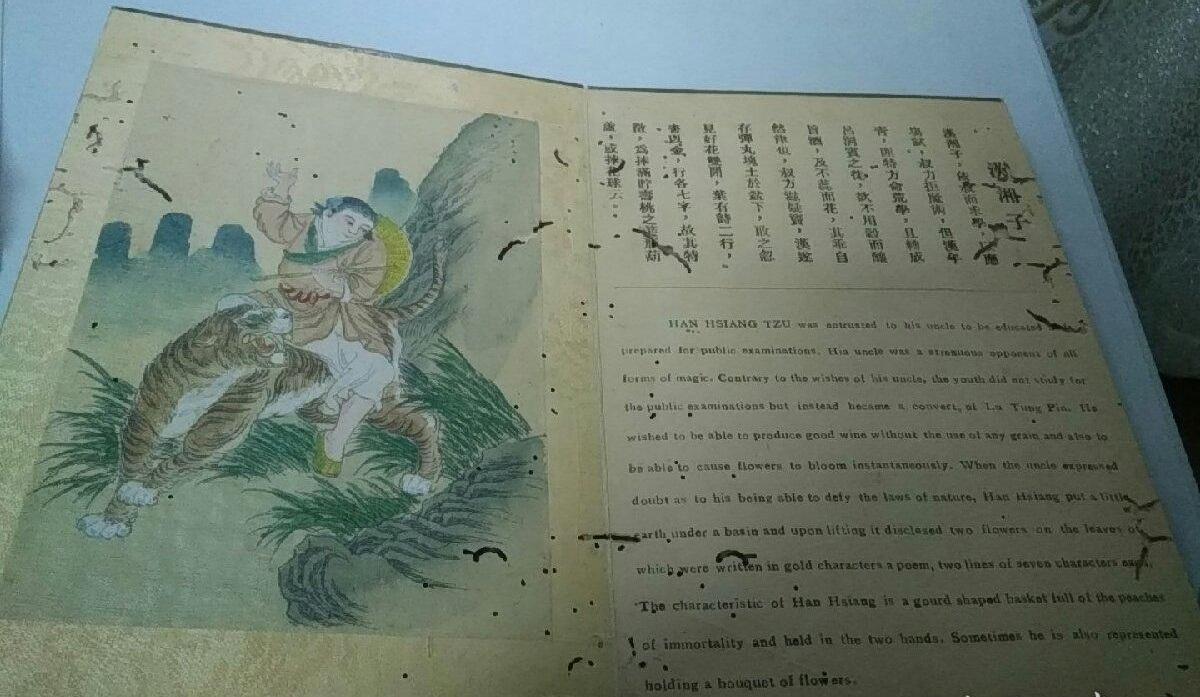 湘子
漢湘子，而求學，應
試，叔力拒魔術，但漢年
青，特力命荒學，且轉成
呂洞賓之徒，欲不用穀而釀
旨酒，及不而花，其乖自
然律也，叔力疑竇，漢遂
存彈丸塊土於盆下，啟之忽
見好花雙開，葉有詩二行，
行各七字，故其特
徵，為捧滿貯壽桃之
或捧花球云。
HAN HSIANG TZU was entrusted to his uncle to be educated
prepared for public examinations. His uncle was a strenuous opponent of all
forms of magic. Contrary to the wishes of his uncle, the youth did not study for
the public examinations but instead became a convert, of Lu Tung Pin. He
wished to be able to produce good wine without the use of any grain and also to
be able to cause flowers to bloom instantaneously. When the uncle expressed
doubt as to his being able to defy the laws of nature, Han Hsiang put a little
earth under a basin and upon lifting it disclosed two flowers on the leaves of
which were written in gold characters a poem, two lines of seven characters each.
The characteristic of Han Hsiang is a gourd shaped basket full of the peaches
of immortality and held in the two hands. Sometimes he is also represented
holding a bouquet of flowers.